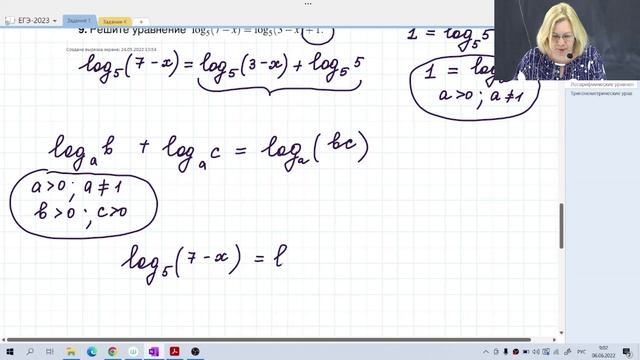 ЕГЭ-2023
Задание 1
Задание 4
9. Решите уравнение log₅(7 − x) = log₅(3 − x) + 1.
Создана вырезка экрана: 24.05.2022 13:54
log₅(7−x) = log₅(3−x) + log₅ 5
1 = log₅ 5
1 = log
a>0 ; a≠1
logₐ b + logₐ c = logₐ(bc)
a>0 ; a≠1
b>0 ; c>0
log₅(7−x) = l
Логарифмические уравнен
Тригонометрические урав
РУС
9:02
06.06.2022